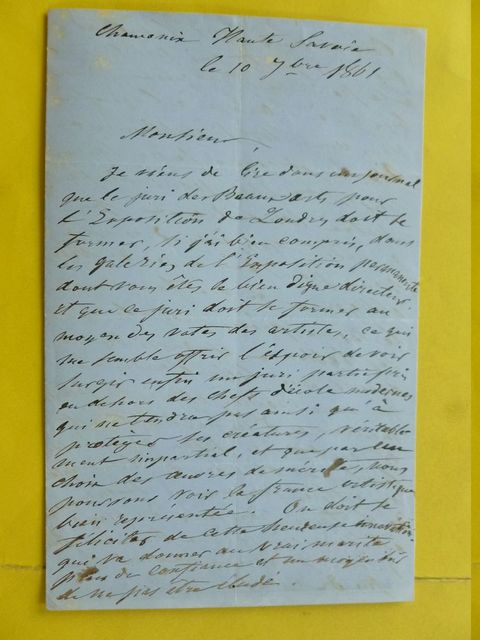 Chamonix Haute Savoie
le 10 7bre 1861
Monsieur
Je viens de lire dans un journal
que le juri des Beaux arts pour
l'Exposition de Londres doit se
former, si j'ai bien compris, dans
les galeries de l'Exposition permanente
dont vous êtes le bien digne directeur
et que ce juri doit se former au
moyen des votes des artistes, ce qui
me semble offrir l'espoir de voir
surgir enfin un juri partie pris
en dehors des chefs d'école modernes
qui ne tendra pas ainsi qu'à
protéger ses créatures, véritable
ment impartial, et que par un
choix des œuvres de mérite, nous
pourrons voir la france artistique
bien représentée. On doit se
féliciter de cette heureuse innovation
qui va donner au vrai mérite
plus de confiance et un moyen sûr
de ne pas être éludé.